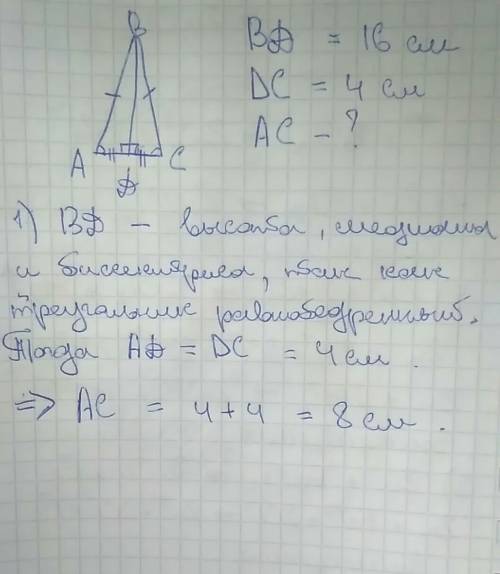 B
A
C
D
BD = 16 см
DC = 4 см
AC - ?
1) BD - высота, медиана
и биссектриса, так как
треугольник равнобедренный.
Тогда AD = DC = 4 см.
=> AC = 4 + 4 = 8 см.